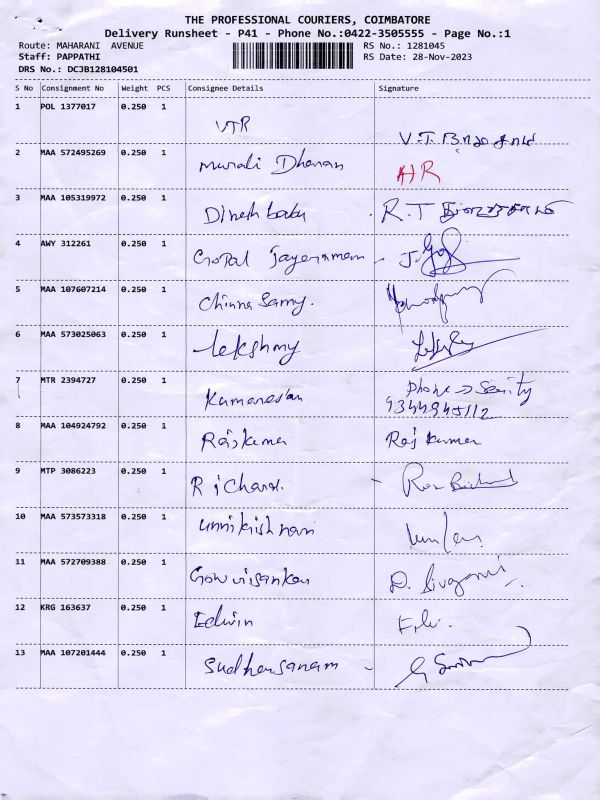 THE PROFESSIONAL COURIERS, COIMBATORE
Delivery Runsheet - P41 - Phone No.:0422-3505555 - Page No.:1
Route: MAHARANI AVENUE RS No.: 1281045
Staff: PAPPATHI RS Date: 28-Nov-2023
DRS No.: DCJB128104501
S No Consignment No Weight PCS Consignee Details Signature
1 POL 1377017 0.250 1 VTR V.T.
2 MAA 572495269 0.250 1 Murali Dharan HR
3 MAA 105319972 0.250 1 Dinesh babu R.T
4 AWY 312261 0.250 1 Gopal Jayaraman
5 MAA 107607214 0.250 1 Chinna Samy.
6 MAA 573025063 0.250 1 lekshmy
7 MTR 2394727 0.250 1 Kumaresan Phone → Seurity 9344945112
8 MAA 104924792 0.250 1 Rajkumar Raj kumar
9 MTP 3086223 0.250 1 Richard.
10 MAA 573573318 0.250 1 unnikrishnan
11 MAA 572709388 0.250 1 Gowrisankar D.
12 KRG 163637 0.250 1 Edwin
13 MAA 107201444 0.250 1 Sudharsanam